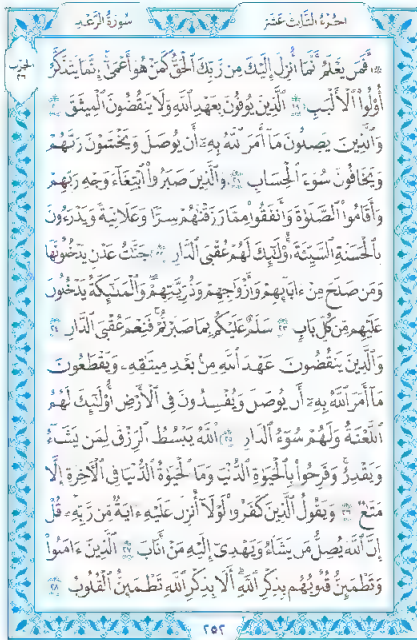 الجزء الثالث عشر
سورة الرعد
الحزب ٢٦
۞ أَفَمَن يَعْلَمُ أَنَّمَا أُنزِلَ إِلَيْكَ مِن رَّبِّكَ الْحَقُّ كَمَنْ هُوَ أَعْمَىٰ إِنَّمَا يَتَذَكَّرُ
أُولُوا الْأَلْبَابِ ١٩ الَّذِينَ يُوفُونَ بِعَهْدِ اللَّهِ وَلَا يَنقُضُونَ الْمِيثَاقَ ٢٠
وَالَّذِينَ يَصِلُونَ مَا أَمَرَ اللَّهُ بِهِ أَن يُوصَلَ وَيَخْشَوْنَ رَبَّهُمْ
وَيَخَافُونَ سُوءَ الْحِسَابِ ٢١ وَالَّذِينَ صَبَرُوا ابْتِغَاءَ وَجْهِ رَبِّهِمْ
وَأَقَامُوا الصَّلَاةَ وَأَنفَقُوا مِمَّا رَزَقْنَاهُمْ سِرًّا وَعَلَانِيَةً وَيَدْرَءُونَ
بِالْحَسَنَةِ السَّيِّئَةَ أُولَٰئِكَ لَهُمْ عُقْبَى الدَّارِ ٢٢ جَنَّاتُ عَدْنٍ يَدْخُلُونَهَا
وَمَن صَلَحَ مِنْ ءَابَائِهِمْ وَأَزْوَاجِهِمْ وَذُرِّيَّاتِهِمْ وَالْمَلَائِكَةُ يَدْخُلُونَ
عَلَيْهِم مِّن كُلِّ بَابٍ ٢٣ سَلَامٌ عَلَيْكُم بِمَا صَبَرْتُمْ فَنِعْمَ عُقْبَى الدَّارِ ٢٤
وَالَّذِينَ يَنقُضُونَ عَهْدَ اللَّهِ مِن بَعْدِ مِيثَاقِهِ وَيَقْطَعُونَ
مَا أَمَرَ اللَّهُ بِهِ أَن يُوصَلَ وَيُفْسِدُونَ فِي الْأَرْضِ أُولَٰئِكَ لَهُمُ
اللَّعْنَةُ وَلَهُمْ سُوءُ الدَّارِ ٢٥ اللَّهُ يَبْسُطُ الرِّزْقَ لِمَن يَشَاءُ
وَيَقْدِرُ وَفَرِحُوا بِالْحَيَوٰةِ الدُّنْيَا وَمَا الْحَيَوٰةُ الدُّنْيَا فِي الْآخِرَةِ إِلَّا
مَتَاعٌ ٢٦ وَيَقُولُ الَّذِينَ كَفَرُوا لَوْلَا أُنزِلَ عَلَيْهِ ءَايَةٌ مِّن رَّبِّهِ قُلْ
إِنَّ اللَّهَ يُضِلُّ مَن يَشَاءُ وَيَهْدِي إِلَيْهِ مَنْ أَنَابَ ٢٧ الَّذِينَ ءَامَنُوا
وَتَطْمَئِنُّ قُلُوبُهُم بِذِكْرِ اللَّهِ أَلَا بِذِكْرِ اللَّهِ تَطْمَئِنُّ الْقُلُوبُ ٢٨
٢٥٢